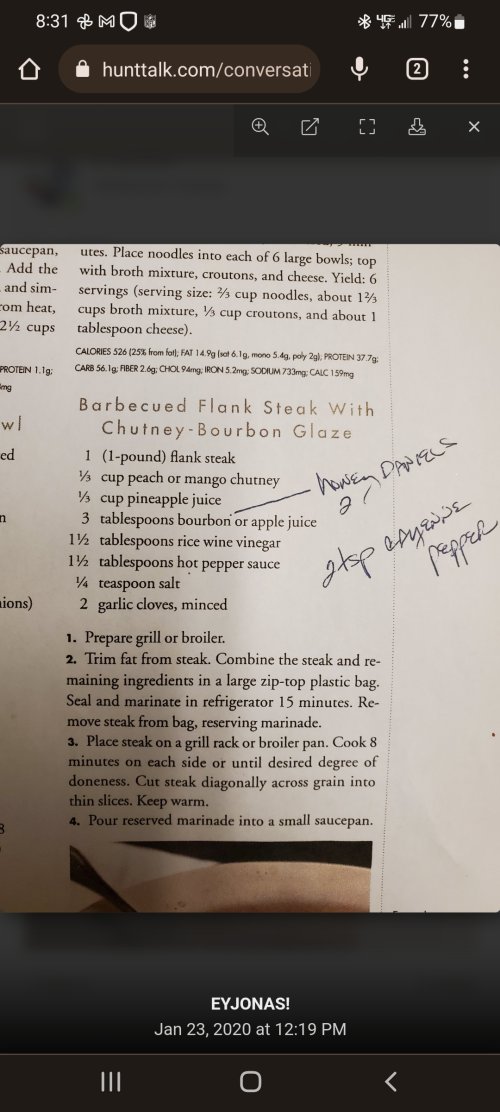 8:31
77%
hunttalk.com/conversati
2
saucepan,
Add the
and sim-
rom heat,
2½ cups
PROTEIN 1.1g;
mg
wl
ed
n
ions)
8
utes. Place noodles into each of 6 large bowls; top
with broth mixture, croutons, and cheese. Yield: 6
servings (serving size: ⅔ cup noodles, about 1⅔
cups broth mixture, ⅓ cup croutons, and about 1
tablespoon cheese).
CALORIES 526 (25% from fat); FAT 14.9g (sat 6.1g, mono 5.4g, poly 2g); PROTEIN 37.7g;
CARB 56.1g; FIBER 2.6g; CHOL 94mg; IRON 5.2mg; SODIUM 733mg; CALC 159mg
Barbecued Flank Steak With
Chutney-Bourbon Glaze
1 (1-pound) flank steak
⅓ cup peach or mango chutney
⅓ cup pineapple juice
3 tablespoons bourbon or apple juice
1½ tablespoons rice wine vinegar
1½ tablespoons hot pepper sauce
¼ teaspoon salt
2 garlic cloves, minced
honey DANIELS
2
2 tsp cayenne
pepper
1. Prepare grill or broiler.
2. Trim fat from steak. Combine the steak and re-
maining ingredients in a large zip-top plastic bag.
Seal and marinate in refrigerator 15 minutes. Re-
move steak from bag, reserving marinade.
3. Place steak on a grill rack or broiler pan. Cook 8
minutes on each side or until desired degree of
doneness. Cut steak diagonally across grain into
thin slices. Keep warm.
4. Pour reserved marinade into a small saucepan.
EYJONAS!
Jan 23, 2020 at 12:19 PM